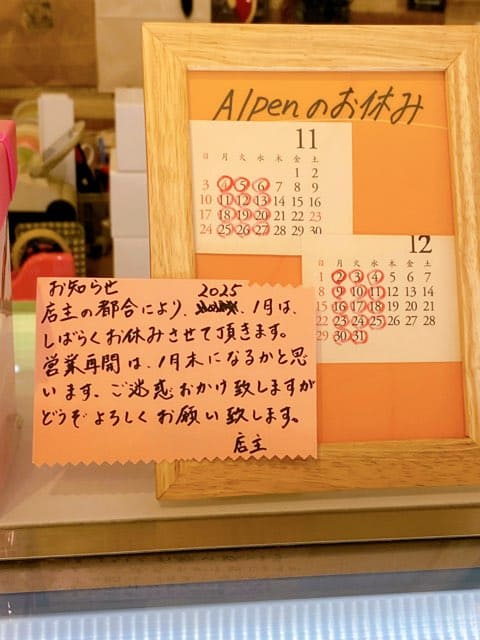 Alpenのお休み
11
日 月 火 水 木 金 土
1 2
3 4 5 6 7 8 9
10 11 12 13 14 15 16
17 18 19 20 21 22 23
24 25 26 27 28 29 30
12
日 月 火 水 木 金 土
1 2 3 4 5 6 7
8 9 10 11 12 13 14
15 16 17 18 19 20 21
22 23 24 25 26 27 28
29 30 31
お知らせ
2025
店主の都合により、1月は、
しばらくお休みさせて頂きます。
営業再開は、1月末になるかと思
います、ご迷惑おかけ致しますが
どうぞよろしくお願い致します。
店主